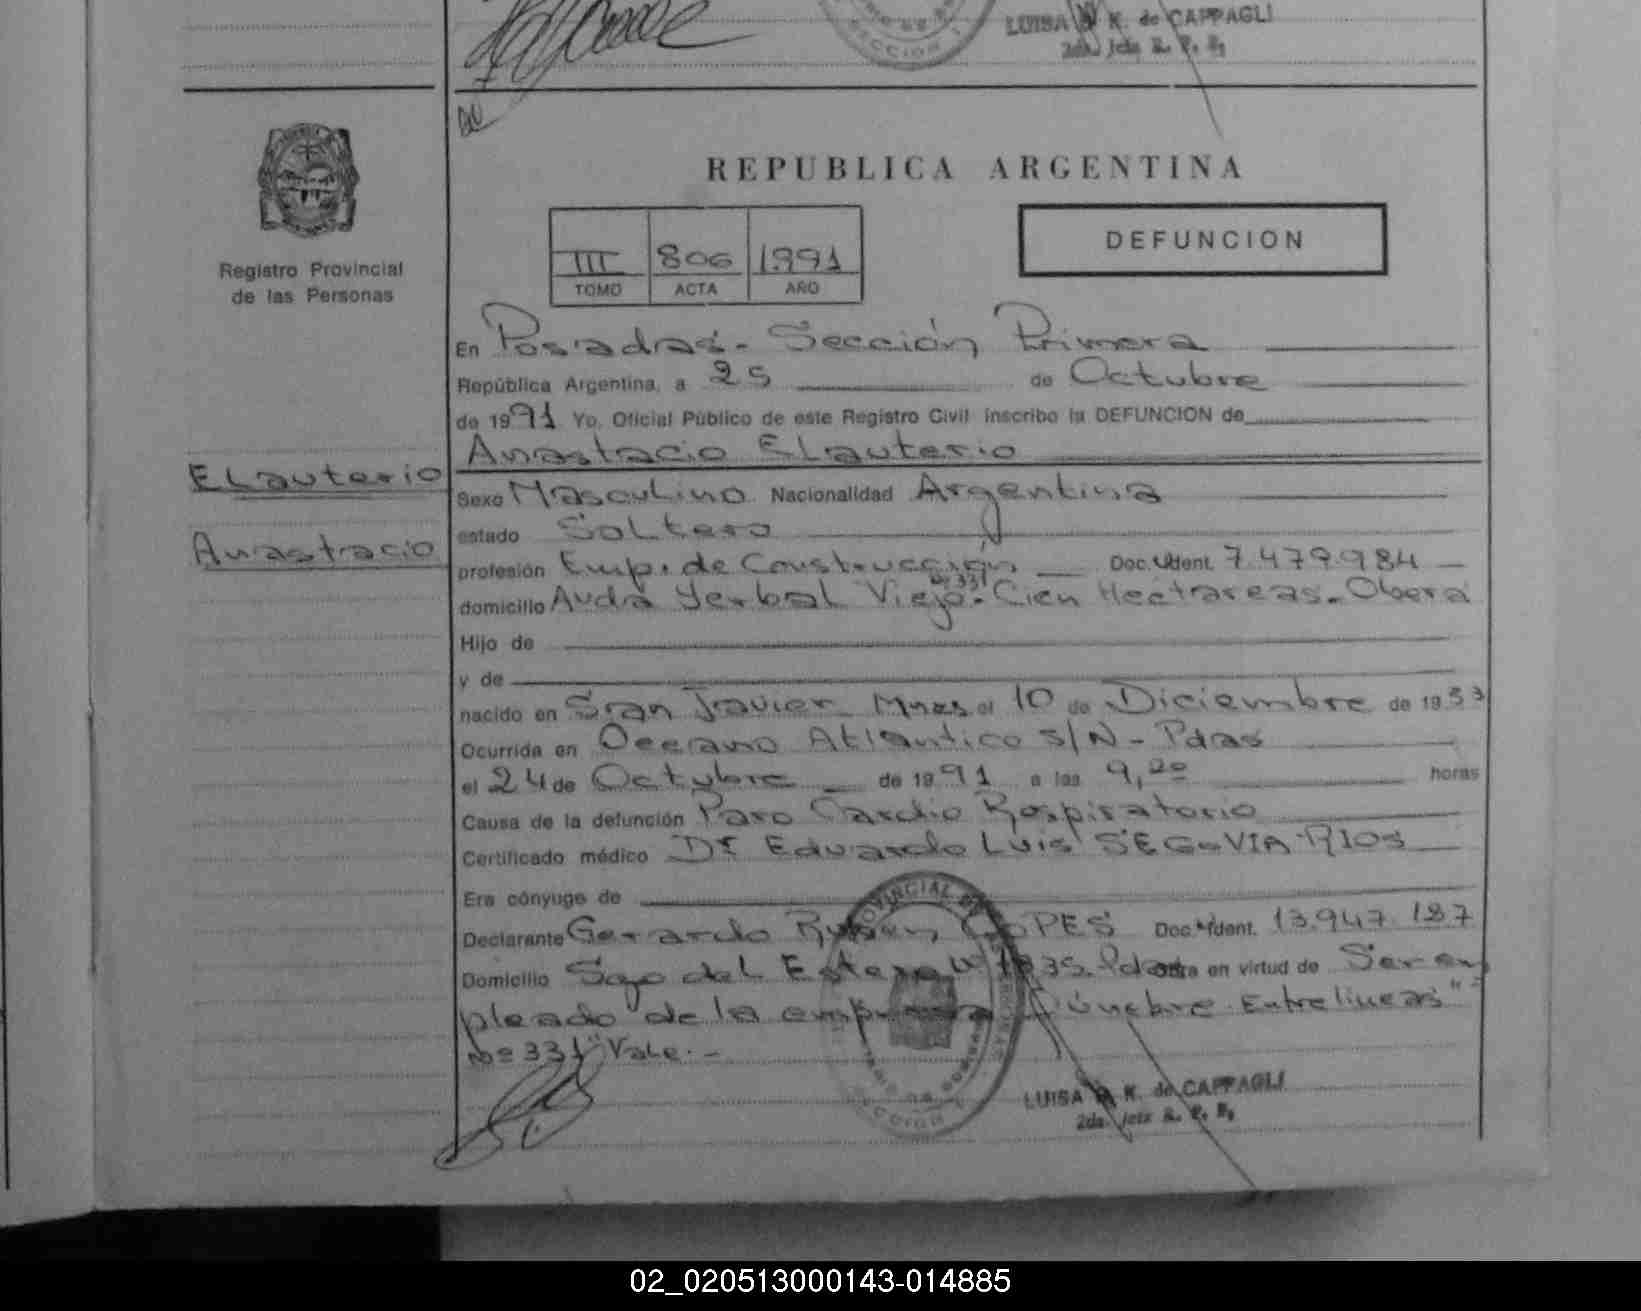 LUISA K. de CAPPAGLI
2da. Jefa R. P. P.
SECCION 1
REPUBLICA ARGENTINA
III 806 1991
TOMO ACTA AÑO
DEFUNCION
Registro Provincial
de las Personas
En Posadas. Sección Primera
República Argentina, a 25 de Octubre
de 1991 Yo, Oficial Público de este Registro Civil inscribo la DEFUNCION de
Anastacio ELauterio
ELauterio
Anastacio
Sexo Masculino Nacionalidad Argentina
estado Soltero
profesión Emp. de Construcción Doc. Ident. 7.479.984
Nº 331
domicilio Avda Yerbal Viejo. Cien Hectareas. Obera
Hijo de
y de
nacido en San Javier Mnes el 10 de Diciembre de 1933
Ocurrida en Oceano Atlantico S/N - Pdas
el 24 de Octubre de 1991 a las 9,20 horas
Causa de la defunción Paro Cardio Respiratorio
Certificado médico Dr Eduardo Luis SEGOVIA RIOS
Era cónyuge de
Declarante Gerardo Ruben LOPES Doc. Ident. 13.947.187
Domicilio Sgo del Estero Nº 1835. Pdas en virtud de Ser em
pleado de la empresa fúnebre. Entrelineas "
Nº 331" Vale. -
LUISA K. de CAPPAGLI
2da. Jefa R. P. P.
SECCION 1
02_020513000143-014885